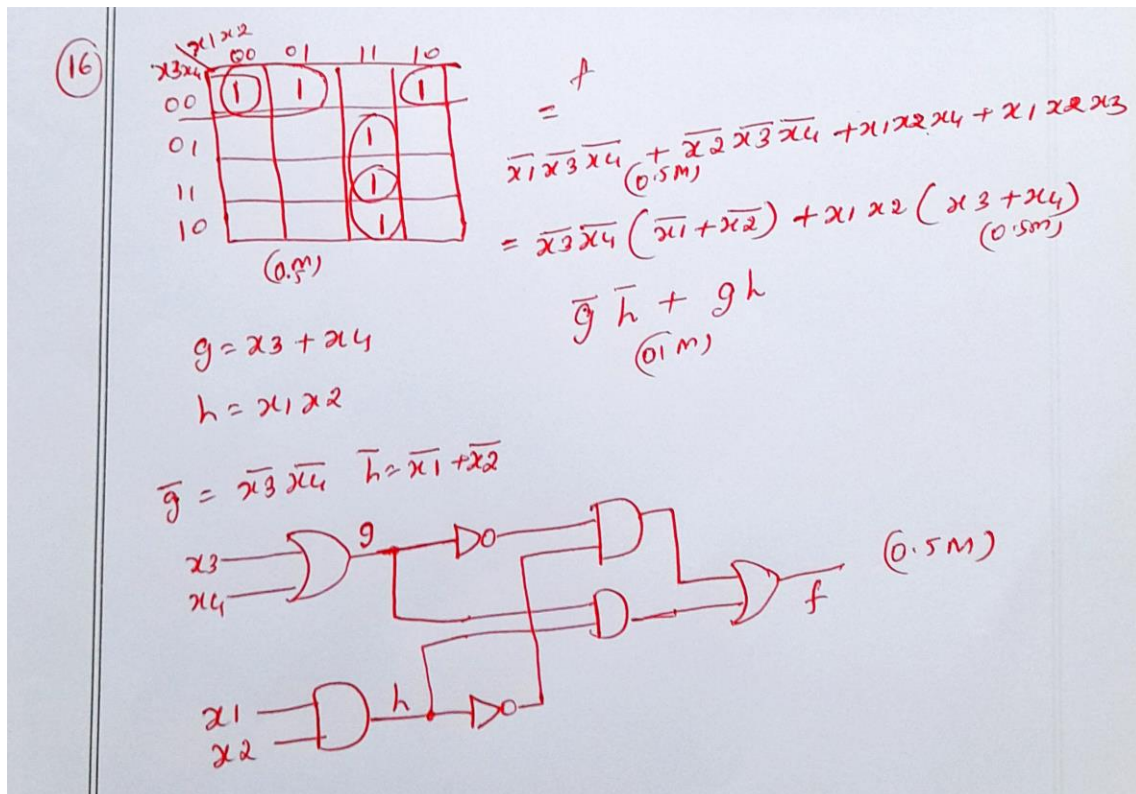 16
x1x2
x3x4 00 01 11 10
00 1 1 1
01 1
11 1
10 1
(0.5M)
f
=
x̅1̅ x̅3̅ x̅4̅ + x̅2̅ x̅3̅ x̅4̅ + x1x2x4 + x1x2x3
(0.5M)
= x̅3̅ x̅4̅ (x̅1̅ + x̅2̅) + x1x2 (x3+x4)
(0.5M)
g̅ h̅ + gh
(01M)
g = x3 + x4
h = x1x2
g̅ = x̅3̅ x̅4̅ h̅ = x̅1̅ + x̅2̅
x3 g
x4
f (0.5M)
x1 h
x2